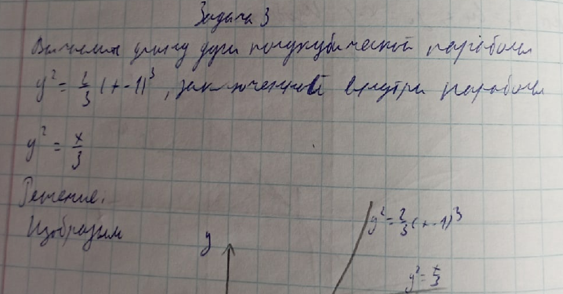 Задача 3
Вычислить длину дуги полукубической параболы
y² = 2/3 (x-1)³, заключенной внутри параболы
y² = x/3
Решение:
Изобразим
y
y² = 2/3 (x-1)³
y² = x/3